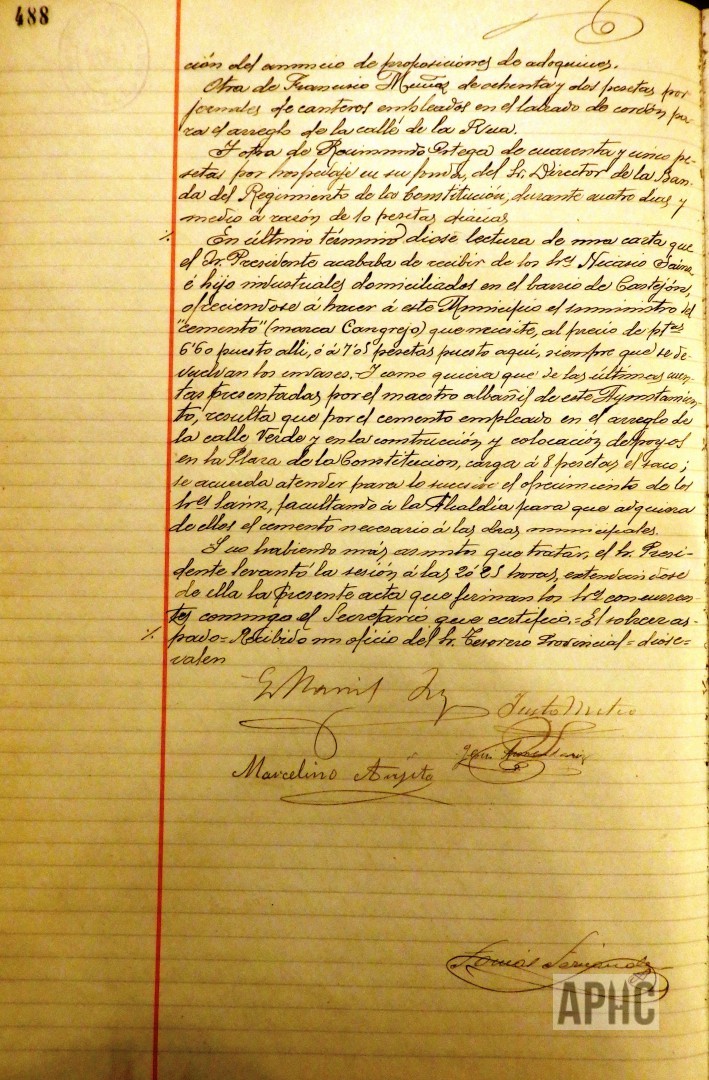 488
ción del anuncio de proposiciones de adoquines.
Otra de Francisco Muñoz de ochenta y dos pesetas por
jornales de canteros empleados en el labrado de cordón pa-
ra el arreglo de la calle de la Rua.
Y otra de Raimundo Ortega de cuarenta y cinco pe-
setas por hospedaje en su fonda, del Sr. Director de la Ban-
da del Regimiento de la Constitución, durante cuatro dias y
medio á razón de 10 pesetas diarias
En último término dióse lectura de una carta que
el Sr. Presidente acababa de recibir de los Sres Nicasio Sainz
é hijo industriales domiciliados en el barrio de Castejón,
ofreciendose á hacer á este Municipio el suministro del
"cemento" (marca Cangrejo) que necesite, al precio de ptas
6'60 puesto alli, ó á 7'05 pesetas puesto aquí, siempre que se de-
vuelvan los envases. Y como quiera que de las últimas cuen-
tas presentadas por el maestro albañil de este Ayuntamien-
to, resulta que por el cemento empleado en el arreglo de
la calle Verde y en la construcción y colocación de poyos
en la Plaza de la Constitucion, carga á 8 pesetas el saco;
se acuerda atender para lo sucesivo el ofrecimiento de los
Sres Sainz, facultando á la Alcaldía para que adquiera
de ellos el cemento necesario á las obras municipales.
Y no habiendo más asuntos que tratar, el Sr. Presi-
dente levantó la sesión á las 20'25 horas, extendiendose
de ella la presente acta que firman los Sres concurren-
tes conmigo el Secretario que certifico.=El sobreras-
pado=Recibido un oficio del Sr. Tesorero Provincial=dióse=
valen
Marcelino
APHC